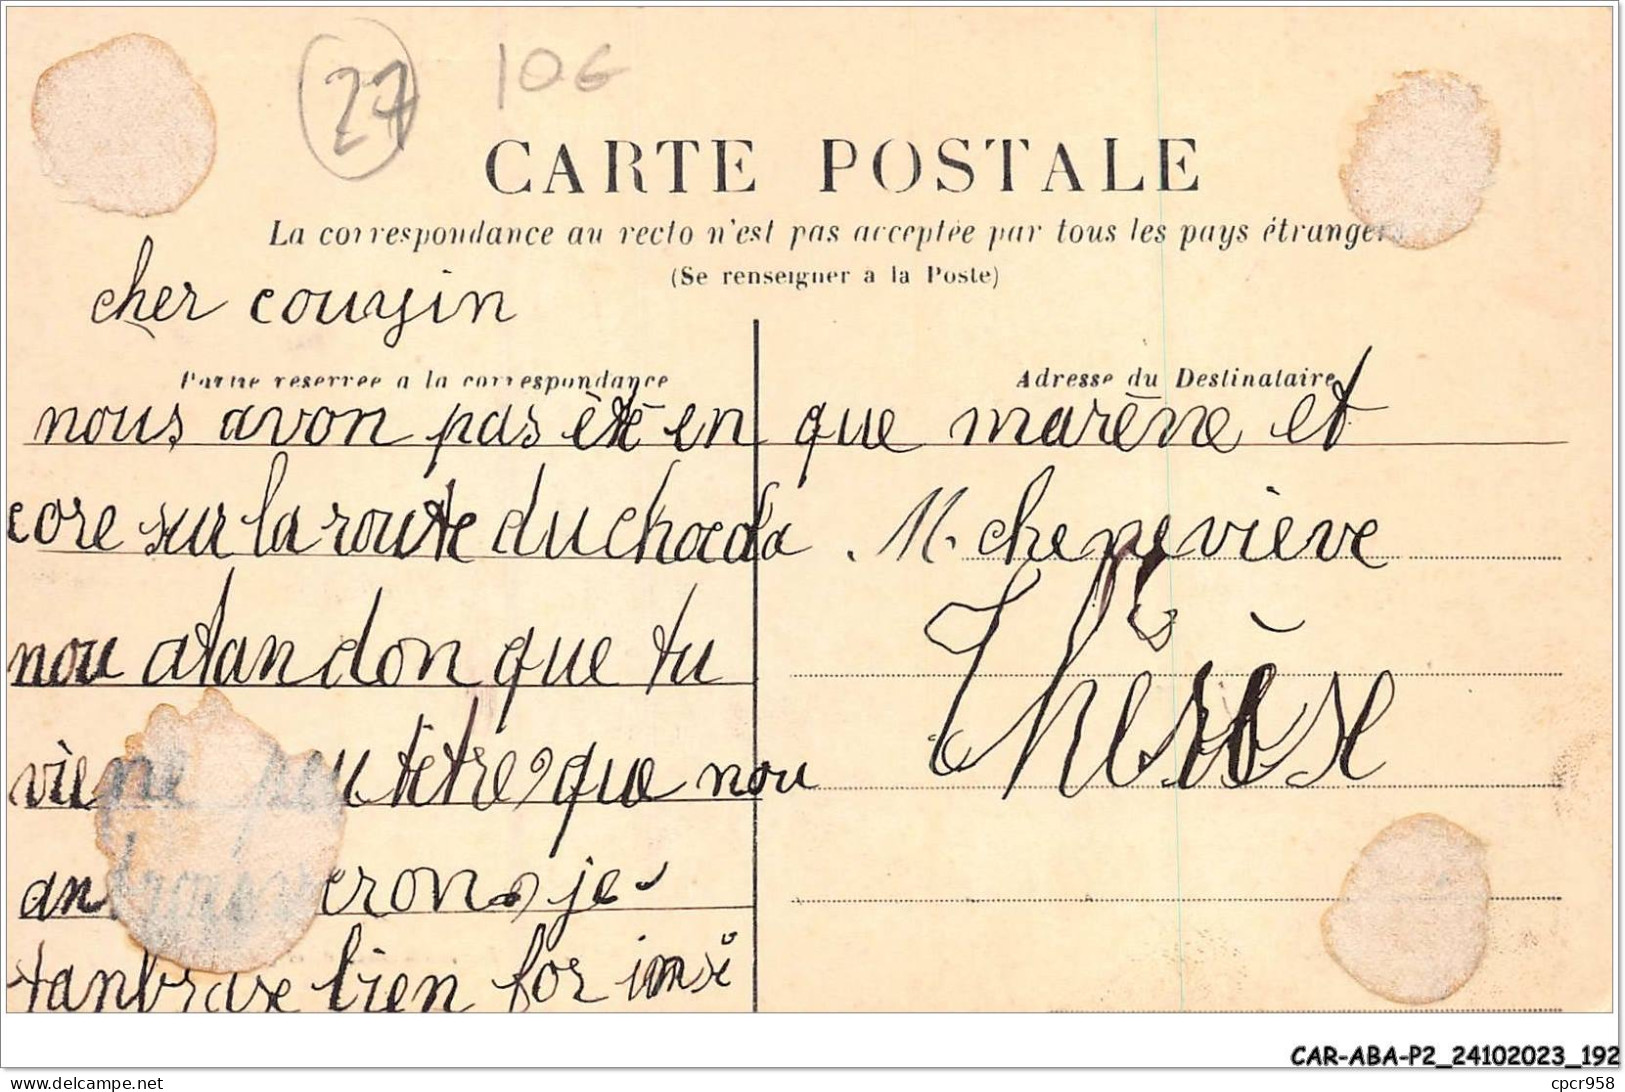 27 106
CARTE POSTALE
La correspondance au recto n'est pas acceptée par tous les pays étrangers
(Se renseigner à la Poste)
cher couyin
Partie réservée à la correspondance
nous avon pas été en
core sur la route du choeda
nou atandon que tu
viene peu têtre que nou
an eron je
tanbrase bien for insi
Adresse du Destinataire
que marène et
M. cheneviève
Thérèse
CAR-ABA-P2_24102023_192
Delcampe.net
cpcr958